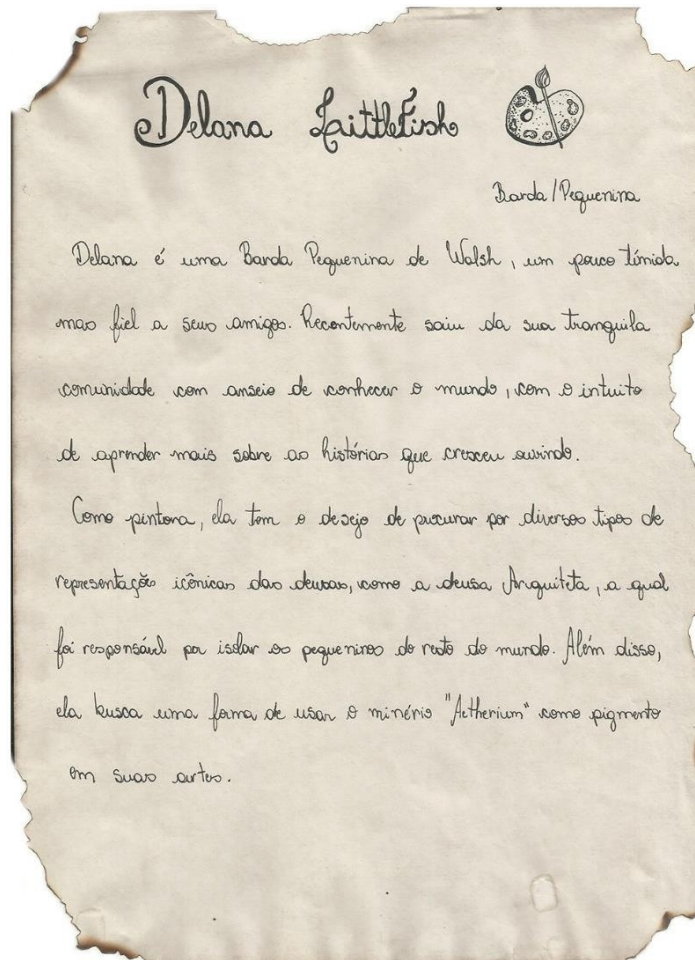 Delana LaittleFish
Barda/Pequenina
Delana é uma Barda Pequenina de Walsh, um pouco tímida
mas fiel a seus amigos. Recentemente saiu da sua tranquila
comunidade com anseio de conhecer o mundo, com o intuito
de aprender mais sobre as histórias que cresceu ouvindo.
Como pintora, ela tem o desejo de procurar por diversos tipos de
representações icônicas das deusas, como a deusa Arquiteta, a qual
foi responsável por isolar os pequeninos do resto do mundo. Além disso,
ela busca uma forma de usar o minério "Aetherium" como pigmento
em suas artes.